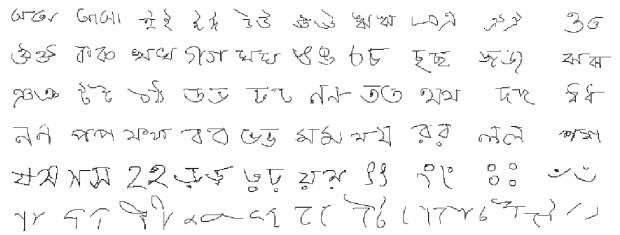 অঅ আআ ইই ঈঈ উউ ঊঊ ঋঋ এএ ঐঐ ওও
ঔঔ কক খখ গগ ঘঘ ঙঙ চচ ছছ জজ ঝঝ
ঞঞ টট ঠঠ ডড ঢঢ ণণ তত থথ দদ ধধ
নন পপ ফফ বব ভভ মম যয রর লল শশ
ষষ সস হহ ড়ড় ঢ়ঢ় য়য় ৎৎ ংং ঃঃ ঁঁ